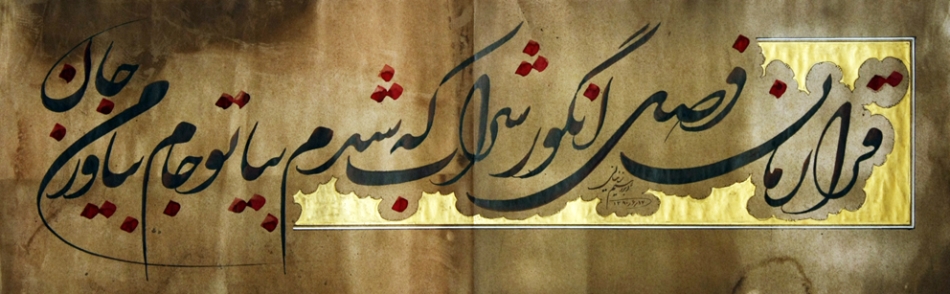 قرارمان فصل انگور شراب که شدم بیا تو جام بیاور من جان